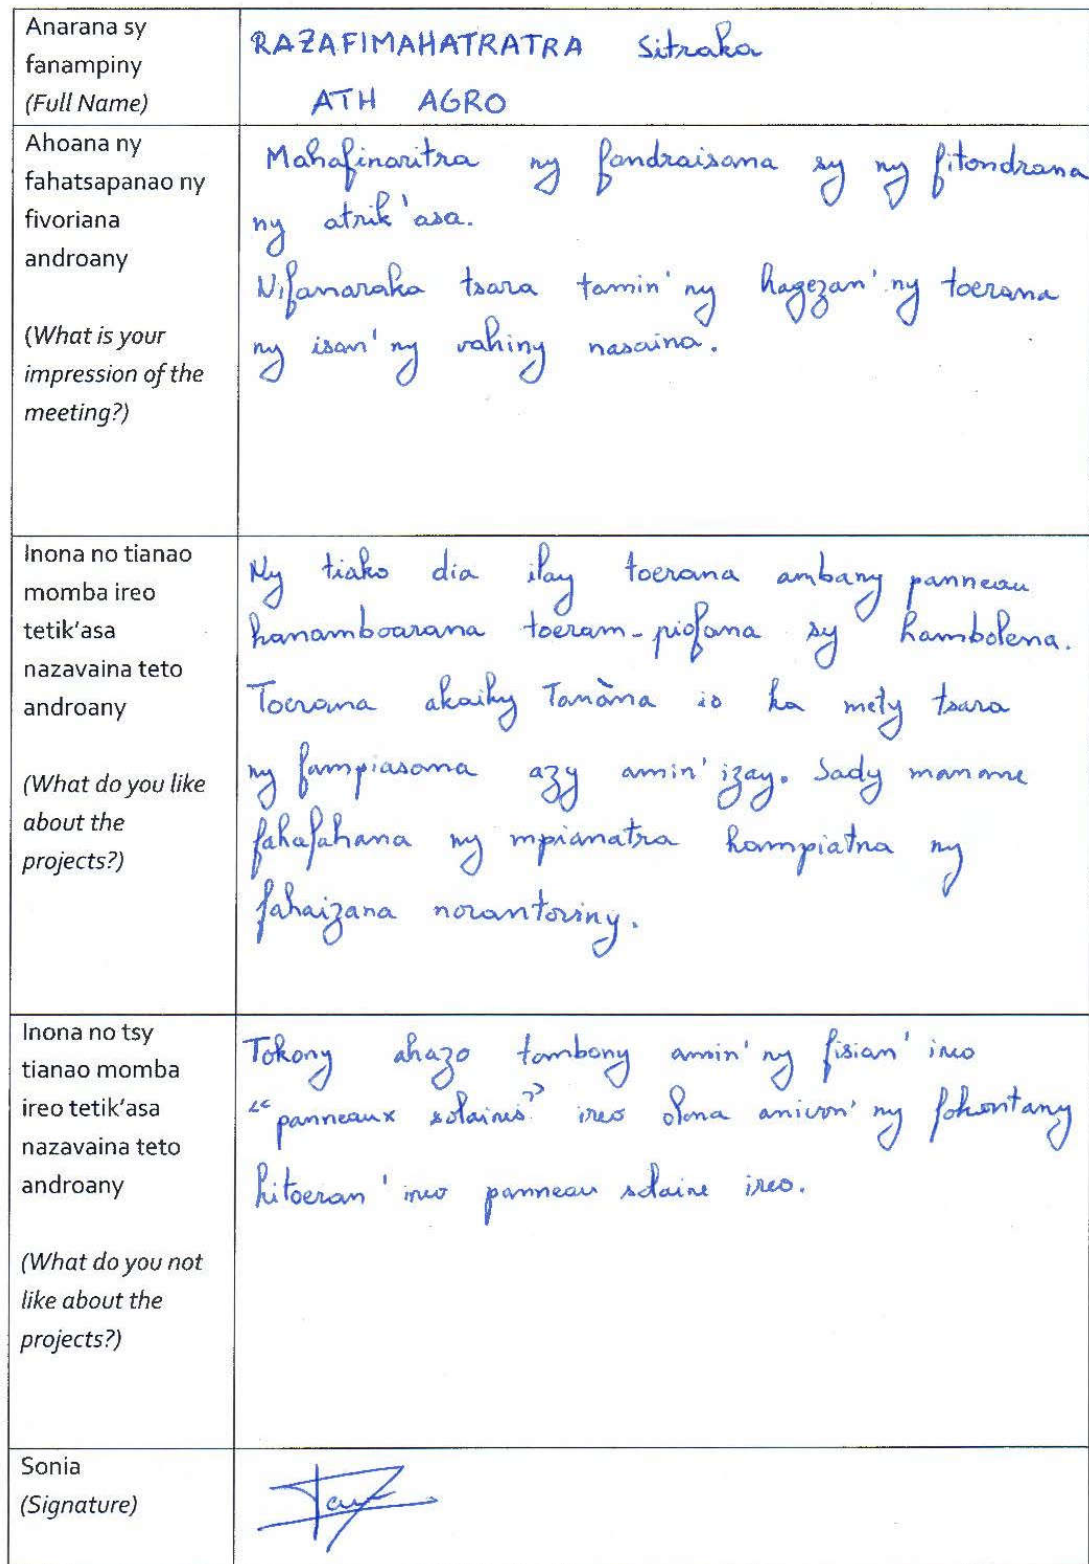 Anarana sy
fanampiny
(Full Name)
RAZAFIMAHATRATRA Sitraka
ATH AGRO
Ahoana ny
fahatsapanao ny
fivoriana
androany
(What is your
impression of the
meeting?)
Mahafinaritra ny fandraisana sy ny fitondrana
ny atrik'asa.
Nifanaraka tsara tamin'ny hagezan'ny toerana
ny isan'ny vahiny nasaina.
Inona no tianao
momba ireo
tetik'asa
nazavaina teto
androany
(What do you like
about the
projects?)
Ny tiako dia ilay toerana ambany panneau
hanamboarana toeram-piofana sy hambolena.
Toerana akaiky Tanàna io ka mety tsara
ny fampiasana azy amin'izay. Sady manome
fahafahana ny mpianatra hampiatra ny
fahaizana norantoviny.
Inona no tsy
tianao momba
ireo tetik'asa
nazavaina teto
androany
(What do you not
like about the
projects?)
Tokony ahazo tombony amin'ny fisian'ireo
"panneaux solaires" ireo olona anivon'ny fokontany
hitoeran'ireo panneau solaire ireo.
Sonia
(Signature)